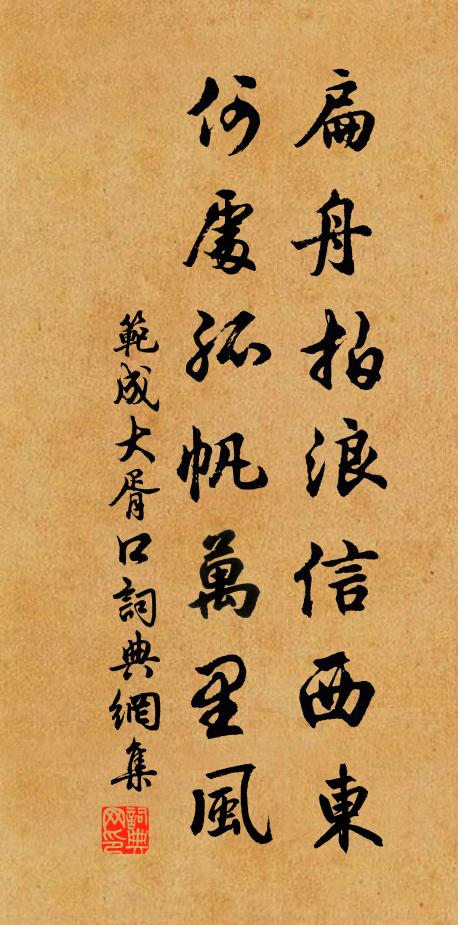 扁舟拍浪信西東
何處孤帆萬里風
範成大胥口詞典網集
詞典網印